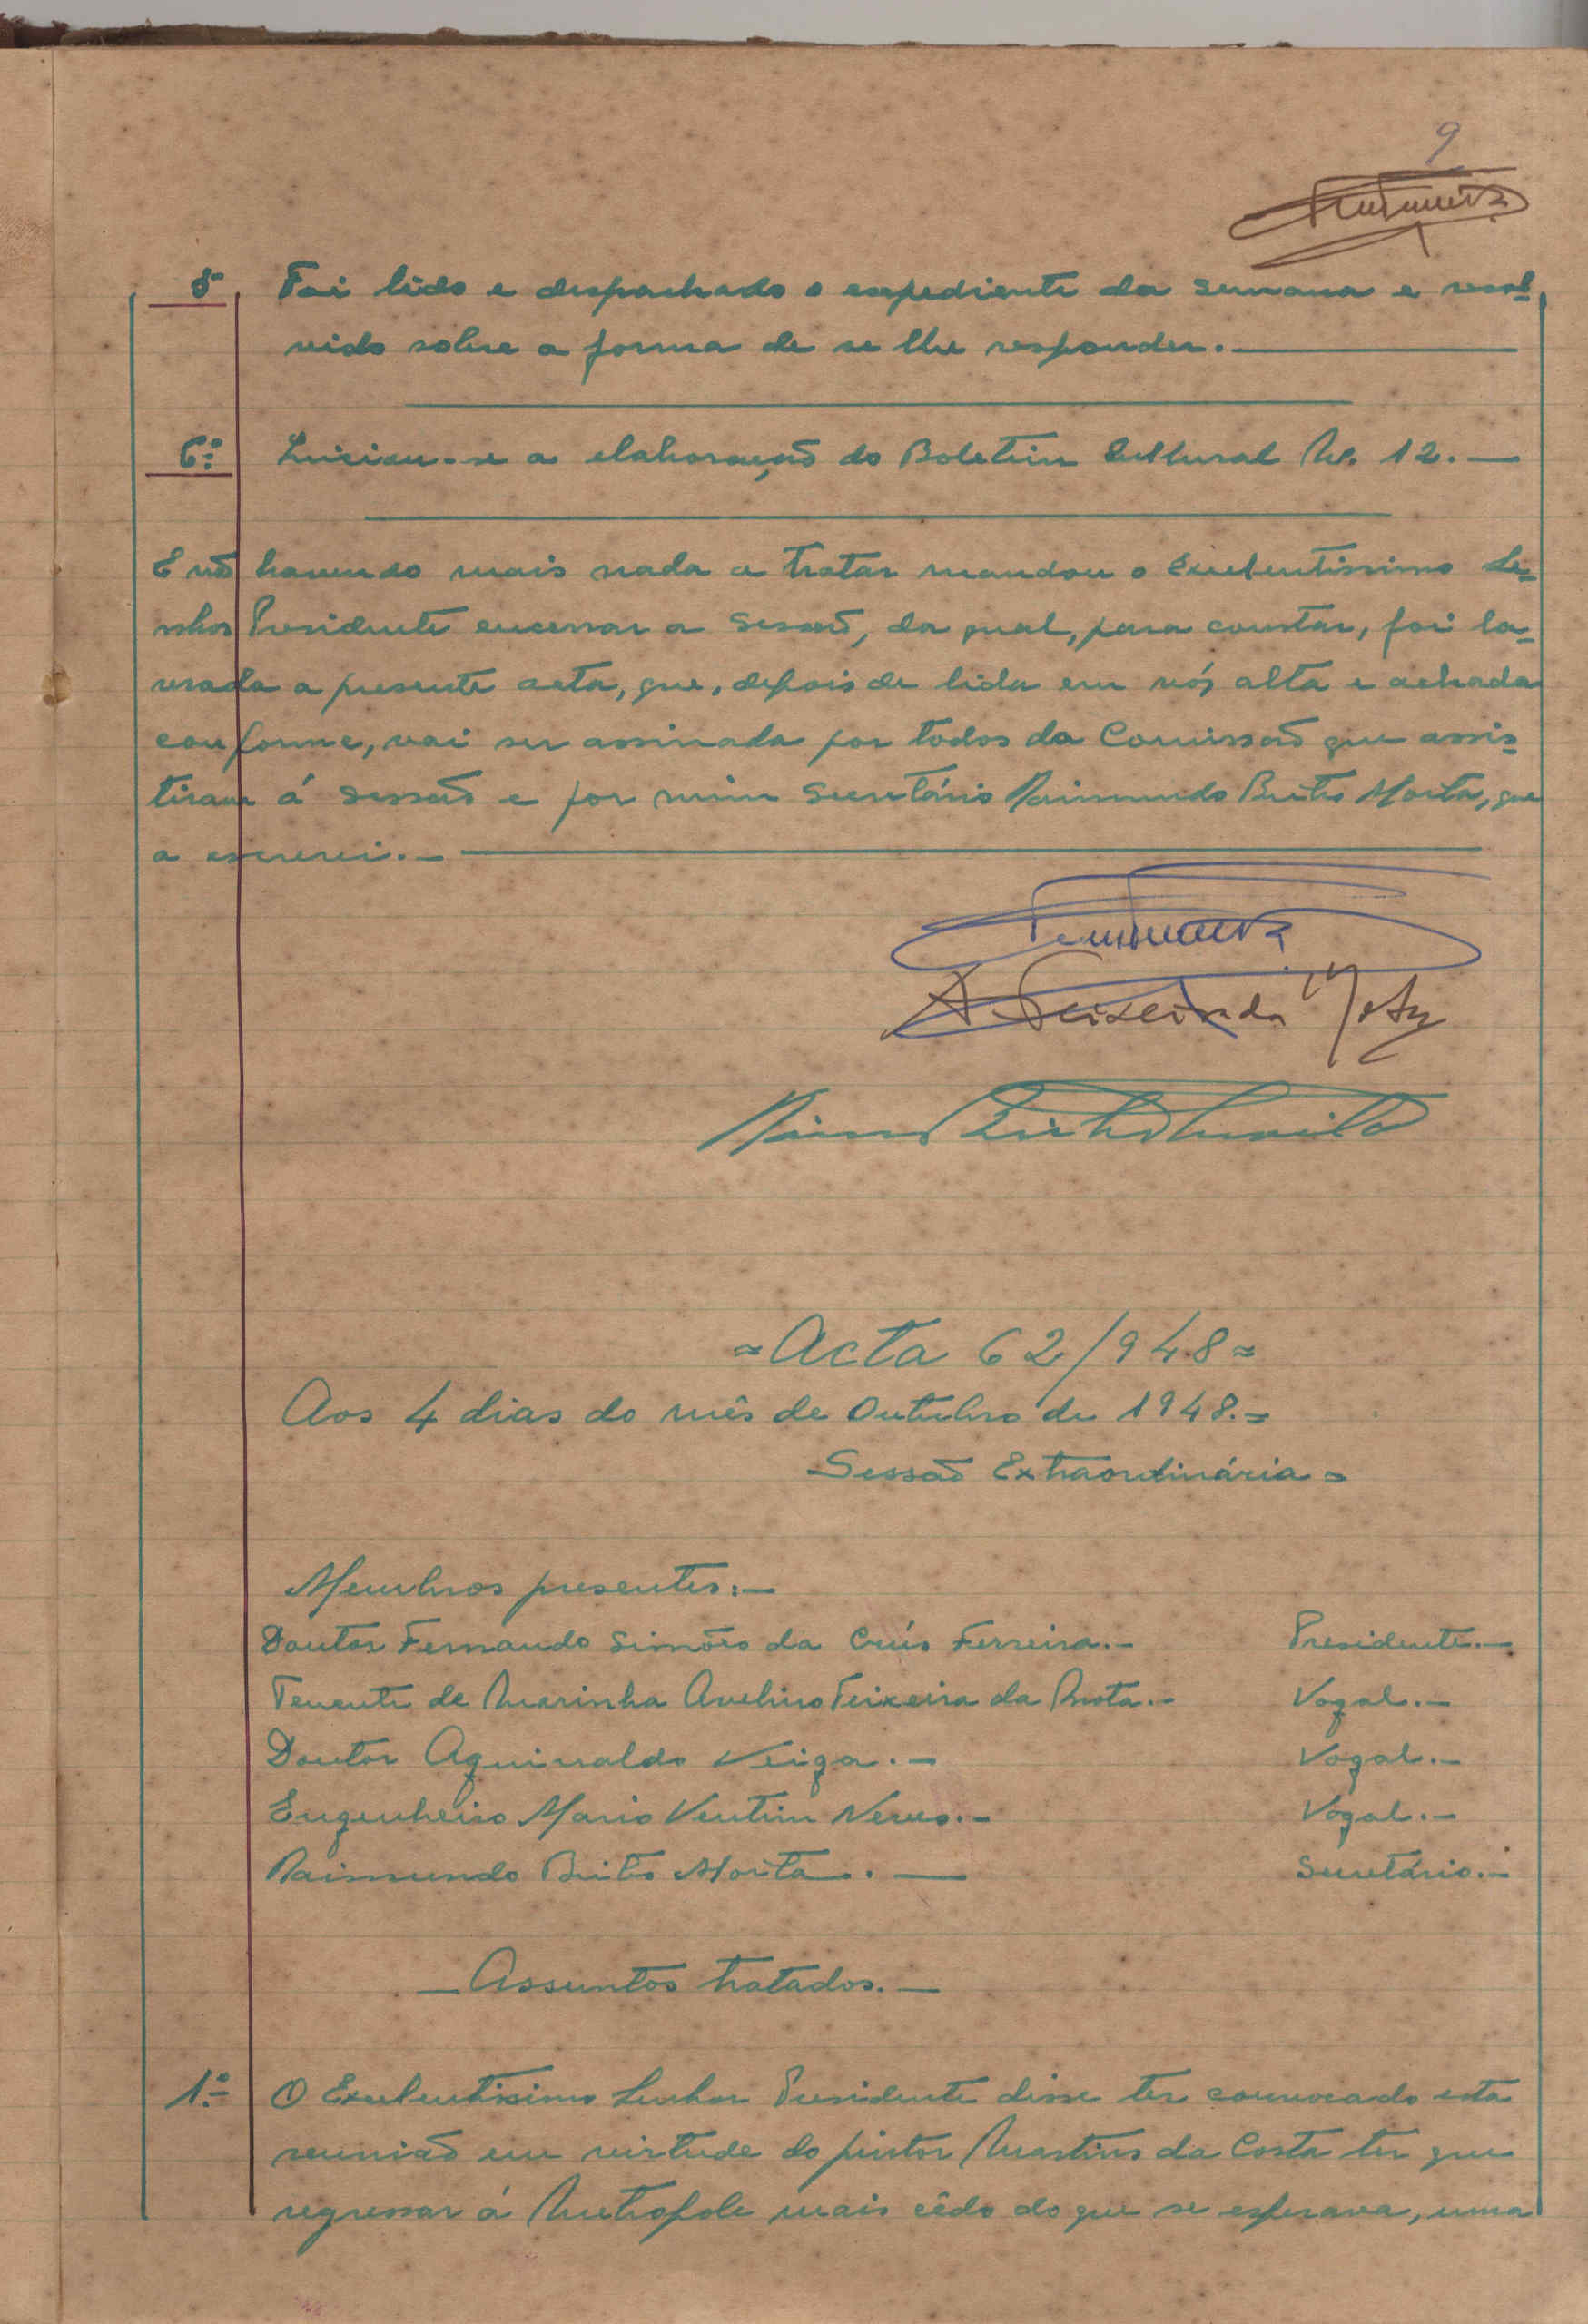 9
5º Foi lido e despachado o expediente da semana e resol-
vido sobre a forma de se lhe responder.
6º Iniciou-se a elaboração do Boletim Cultural Nº. 12.
E não havendo mais nada a tratar mandou o Excelentissimo Se-
nhor Presidente encerrar a sessão, da qual, para constar, foi la-
vrada a presente acta, que, depois de lida em vós alta e achada
conforme, vai ser assinada por todos da Comissão que assis-
tiram á sessão e por mim Secretário Raimundo Brites Moita, que
a escrevi.
A Teixeira da Mota
= Acta 62/948 =
Aos 4 dias do mês de Outubro de 1948.=
Sessão Extraordinária =
Membros presentes:-
Doutor Fernando Simões da Crús Ferreira.- Presidente.-
Tenente de Marinha Avelino Teixeira da Mota.- Vogal.-
Doutor Aguinaldo Veiga.- Vogal.-
Engenheiro Mario Ventim Neves.- Vogal.-
Raimundo Brites Moita.- Secretário.-
- Assuntos tratados.-
1º O Excelentissimo Senhor Presidente disse ter convocado esta
reunião em virtude do pintor Martins da Costa ter que
regressar á Metropole mais cêdo do que se esperava, uma